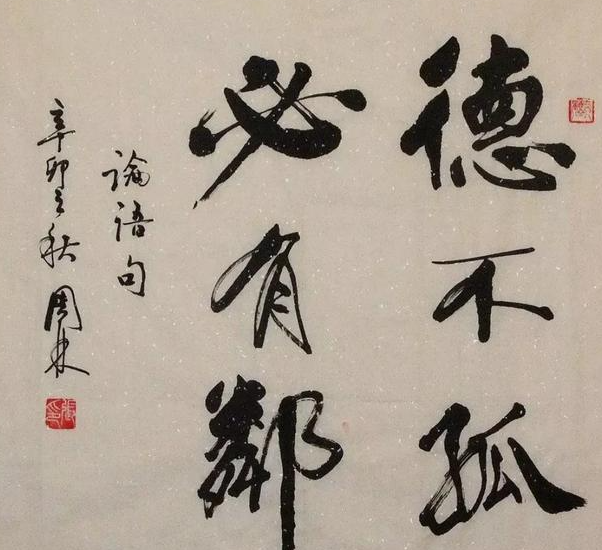 德不孤
必有鄰
論語句
辛卯之秋周東